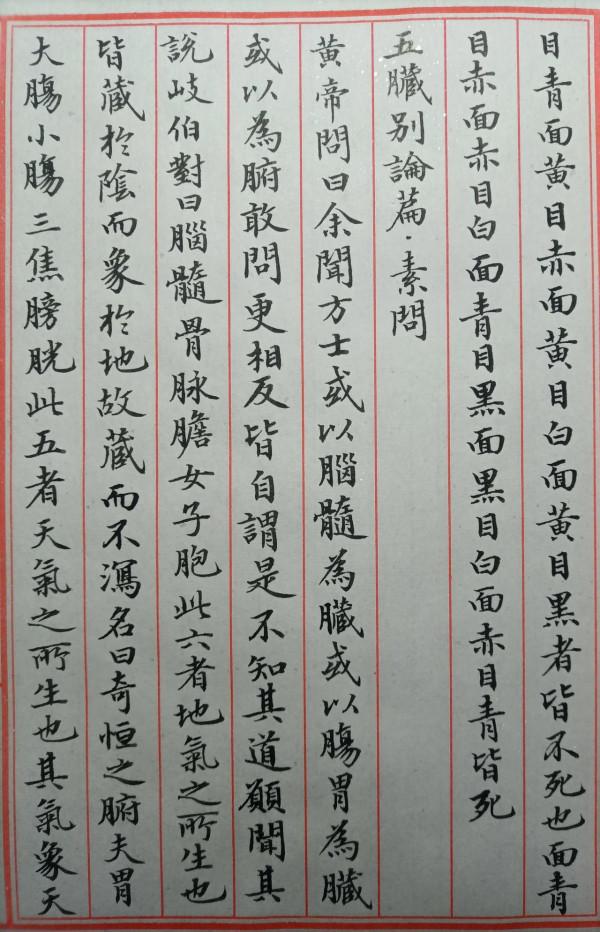 目青面黃目赤面黃目白面黃目黑者皆不死也面青
目赤面赤目白面青目黑面黑目白面赤目青皆死
五臟别論篇·素問
黃帝問曰余聞方士或以腦髓為臟或以腸胃為臟
或以為腑敢問更相反皆自謂是不知其道願聞其
說岐伯對曰腦髓骨脉膽女子胞此六者地氣之所生也
皆藏於陰而象於地故藏而不瀉名曰奇恒之腑夫胃
大腸小腸三焦膀胱此五者天氣之所生也其氣象天